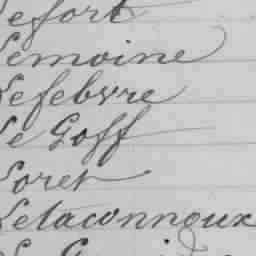 Lefort
Lemoine
Lefebvre
Le Goff
Loret
Letaconnoux